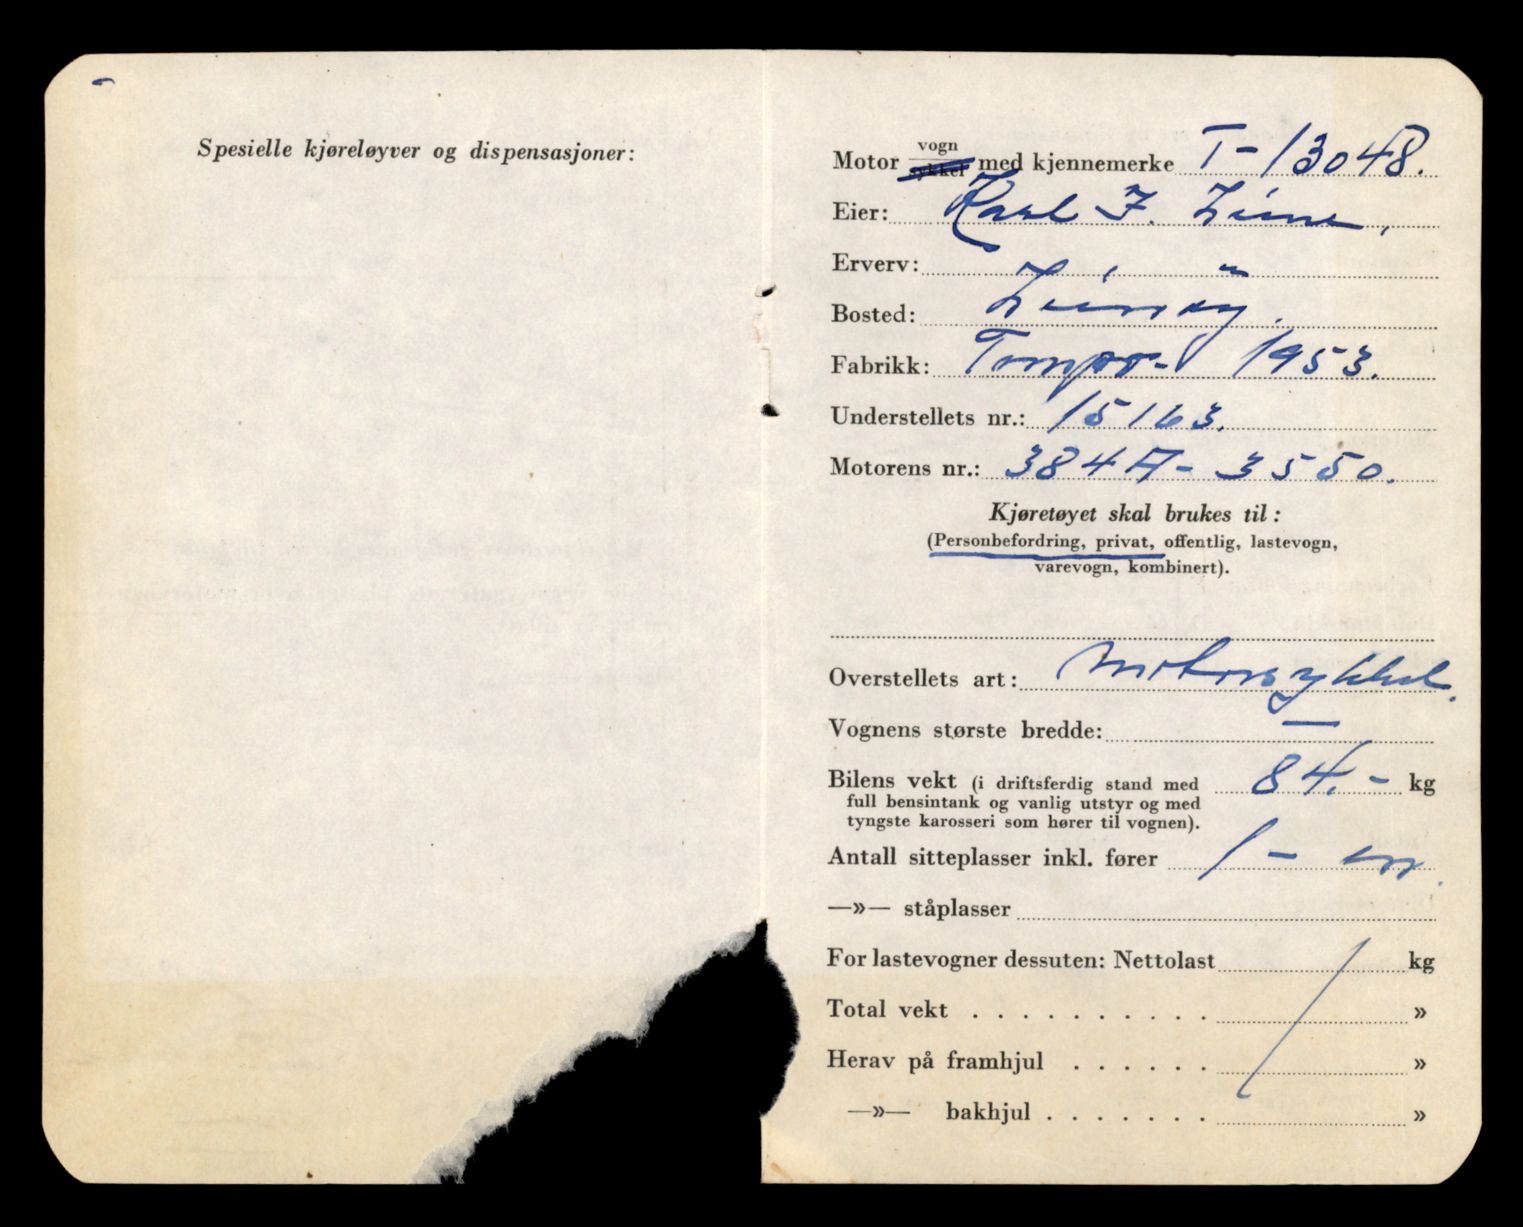 Spesielle kjøreløyver og dispensasjoner:
Motor vogn sykkel med kjennemerke T-13048.
Eier: Karl J. Lime,
Erverv:
Bosted:
Fabrikk: Tempo- 1953.
Understellets nr.: 15163.
Motorens nr.: 384A- 3550.
Kjøretøyet skal brukes til:
(Personbefordring, privat, offentlig, lastevogn,
varevogn, kombinert).
Overstellets art: Motorsykkel.
Vognens største bredde: —
Bilens vekt (i driftsferdig stand med 84.- kg
full bensintank og vanlig utstyr og med
tyngste karosseri som hører til vognen).
Antall sitteplasser inkl. fører 1 - en.
—»— ståplasser
For lastevogner dessuten: Nettolast kg
Total vekt . . . . . . . . . . »
Herav på framhjul . . . . . . »
—»— bakhjul . . . . . . . »